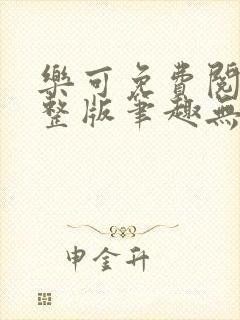 樂可免費閱
整版筆趣無
申金升